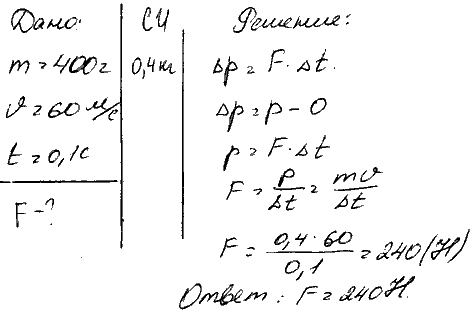 Дано:
m = 400 г
υ = 60 м/с
t = 0,1 с
F - ?
СИ
0,4 кг
Решение:
Δp = F · Δt.
Δp = p - 0
p = F · Δt
F = p/Δt = mυ/Δt
F = 0,4 · 60/0,1 = 240 (Н)
Ответ: F = 240 Н.